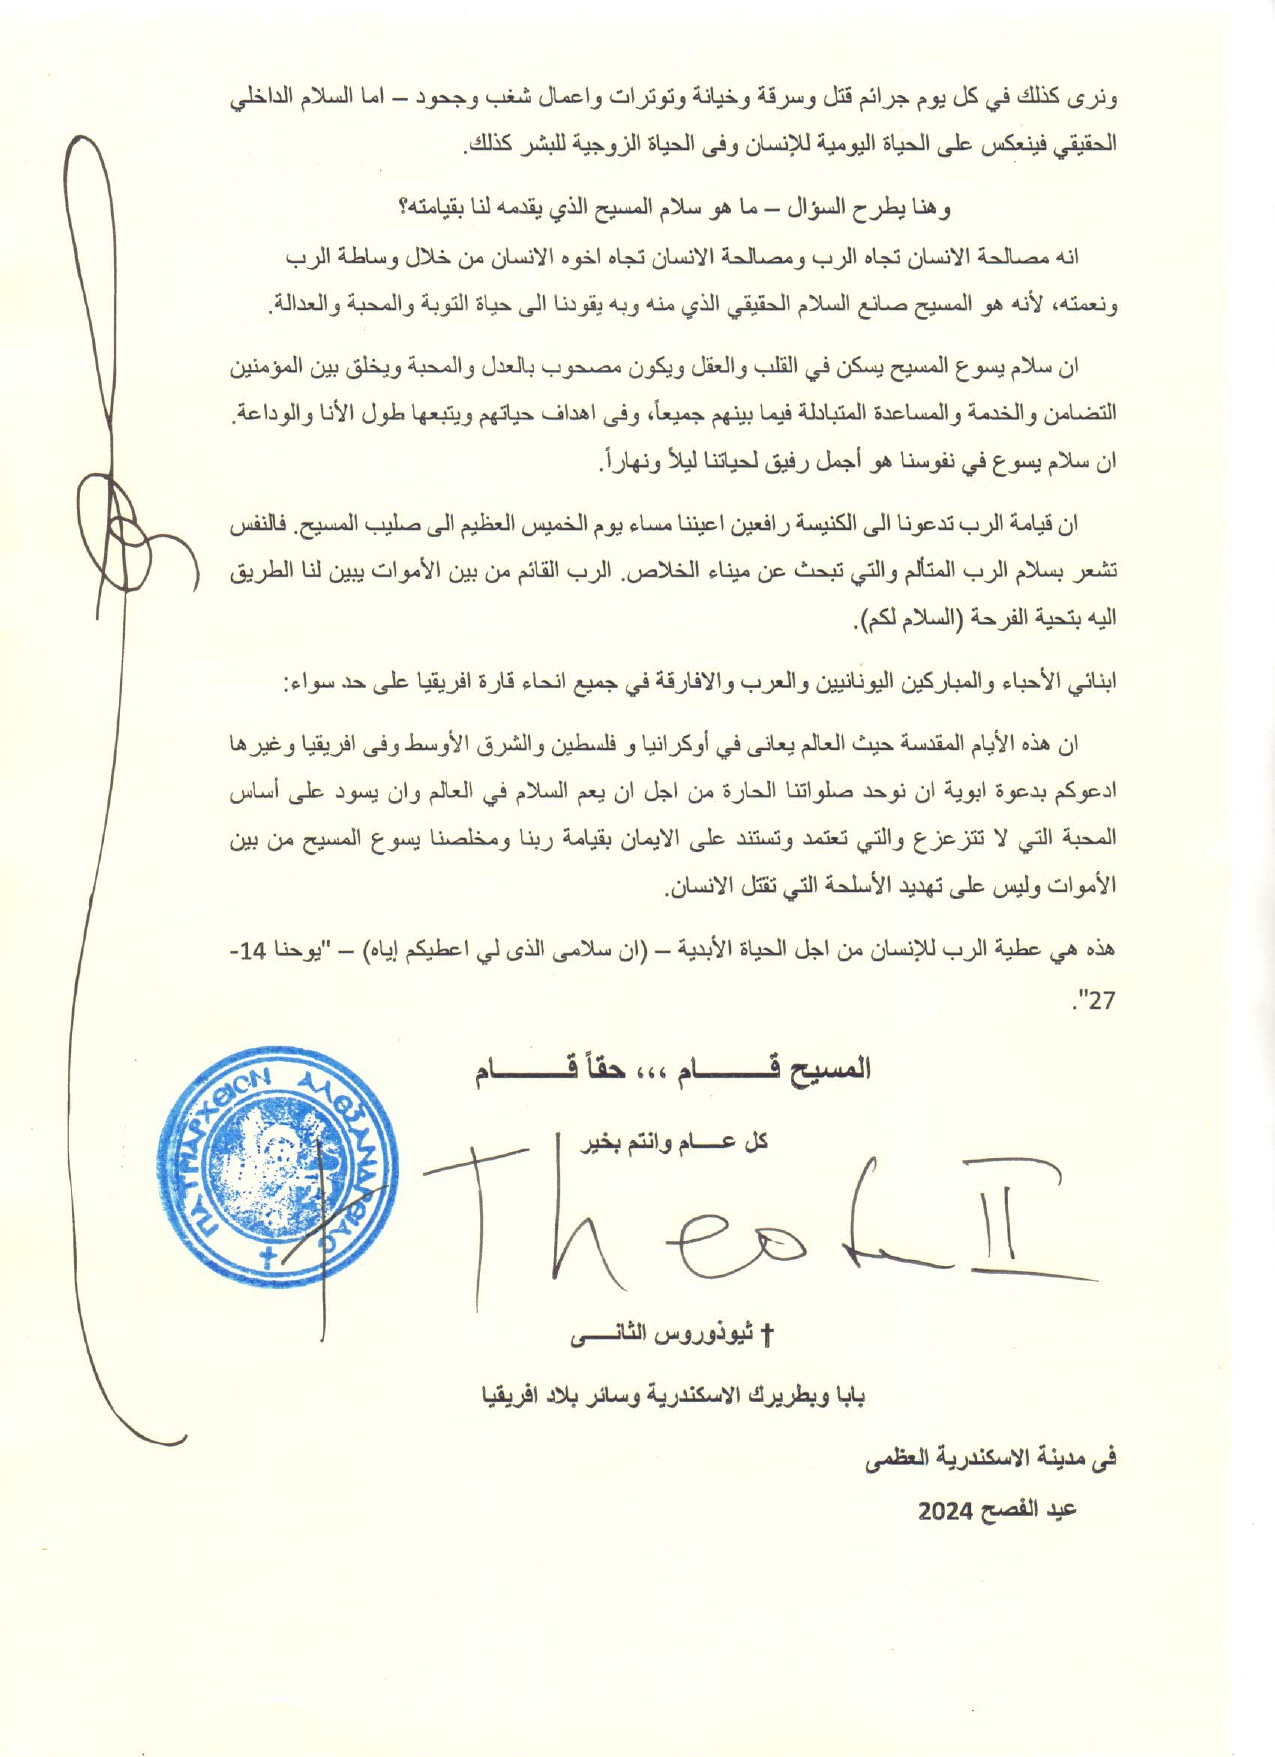 ونرى كذلك في كل يوم جرائم قتل وسرقة وخيانة وتوترات واعمال شغب وجحود – اما السلام الداخلي
الحقيقي فينعكس على الحياة اليومية للإنسان وفى الحياة الزوجية للبشر كذلك.
وهنا يطرح السؤال – ما هو سلام المسيح الذي يقدمه لنا بقيامته؟
انه مصالحة الانسان تجاه الرب ومصالحة الانسان تجاه اخوه الانسان من خلال وساطة الرب
ونعمته، لأنه هو المسيح صانع السلام الحقيقي الذي منه وبه يقودنا الى حياة التوبة والمحبة والعدالة.
ان سلام يسوع المسيح يسكن في القلب والعقل ويكون مصحوب بالعدل والمحبة ويخلق بين المؤمنين
التضامن والخدمة والمساعدة المتبادلة فيما بينهم جميعاً، وفى اهداف حياتهم ويتبعها طول الأنا والوداعة.
ان سلام يسوع في نفوسنا هو أجمل رفيق لحياتنا ليلاً ونهاراً.
ان قيامة الرب تدعونا الى الكنيسة رافعين اعيننا مساء يوم الخميس العظيم الى صليب المسيح. فالنفس
تشعر بسلام الرب المتألم والتي تبحث عن ميناء الخلاص. الرب القائم من بين الأموات يبين لنا الطريق
اليه بتحية الفرحة (السلام لكم).
ابنائي الأحباء والمباركين اليونانيين والعرب والافارقة في جميع انحاء قارة افريقيا على حد سواء:
ان هذه الأيام المقدسة حيث العالم يعانى في أوكرانيا و فلسطين والشرق الأوسط وفى افريقيا وغيرها
ادعوكم بدعوة ابوية ان نوحد صلواتنا الحارة من اجل ان يعم السلام في العالم وان يسود على أساس
المحبة التي لا تتزعزع والتي تعتمد وتستند على الايمان بقيامة ربنا ومخلصنا يسوع المسيح من بين
الأموات وليس على تهديد الأسلحة التي تقتل الانسان.
هذه هي عطية الرب للإنسان من اجل الحياة الأبدية – (ان سلامى الذى لي اعطيكم إياه) – "يوحنا 14-
27".
المسيح قـــــــام ،،، حقاً قـــــــام
كل عـــام وانتم بخير
ΠΑΤΡΙΑΡΧΕΙΟΝ ΑΛΕΞΑΝΔΡΕΙΑΣ
† ثيوذوروس الثانـــى
بابا وبطريرك الاسكندرية وسائر بلاد افريقيا
فى مدينة الاسكندرية العظمى
عيد الفصح 2024